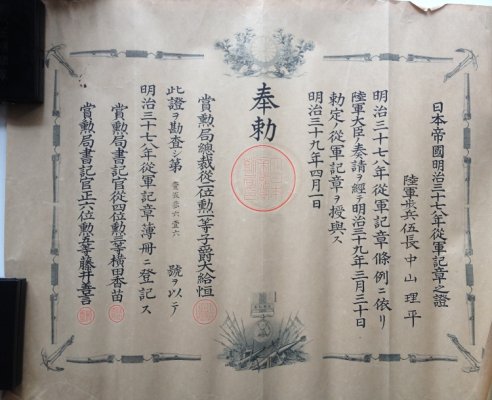 日本帝國明治三十七八年從軍記章之證
陸軍歩兵伍長中山理平
明治三十七八年從軍記章條例ニ依リ
陸軍大臣ノ奏請ヲ經テ明治三十九年三月三十日
勅定ノ從軍記章ヲ授與ス
明治三十九年四月一日
奉勅
賞勲局總裁從二位勲一等子爵大給恒
此證ヲ勘査シ第 號ヲ以テ
明治三十七八年從軍記章簿册ニ登記ス
賞勲局書記官從四位勲三等横田香苗
賞勲局書記官正六位勲五等藤井善言